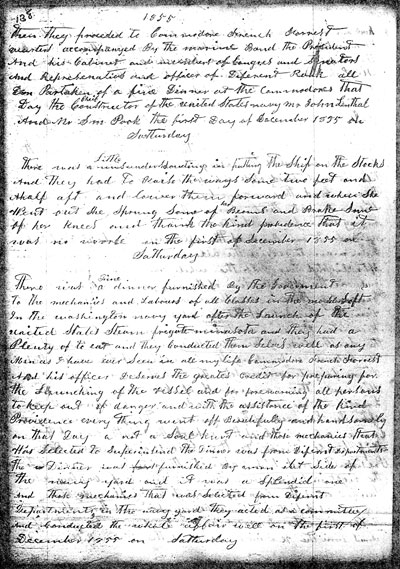 138
1855
Then they proceded to Commodore French Forrest
quarters accompanyed By the marine Band the President
And his Cabinet and members of Congress and Senators
And Representatives and officers of Diferent Rank all
Partaken of a fine Dinner at the Commodores that
Day the Chief Constructor of the united States navy Mr John Lenthal
And Mr Sm Pook the first Day of December 1855 on
Satturday
There was a Little misunderstanding in putting the Ship on the Stocks
And they had to Raise the ways Some two feet and
Ahalf aft and lower them forward and when She
Went out She Sprung Some of her Beams and Brake Some
of her knees and thank the kind providence that it
was no worse in the first of December 1855 on
Satturday
There was a fine dinner furnished By the Goverment
To the mechanics and Labours of all Classes in the mold Loft
In the washington navy yard after the Launch of the
united States Steam frigate minnesota and they had a
Plenty of to eat and they Conducted them Selves well as any
Men as I have Ever Seen in all my life Commodore French Forrest
And his officer Deserves the greates Credit for preparing for
the Launching of the vessel and for preparing all persons
to keep out of danger and with the assistance of the kind
Providence every thing went off Beautifully and handsomely
on that Day a not a Soul hurt and those mechanics that
Was Selected to Superintend the Dinner was from Diferent Departments
The Dinner was furnished By a man out Side of
the navy yard and it was a Splendid one
And those mechanics that was Selected from Difernt
Departments in the navy yard they acted as a committee
And Conducted the whole affair well on the first of
December 1855 on Satturday